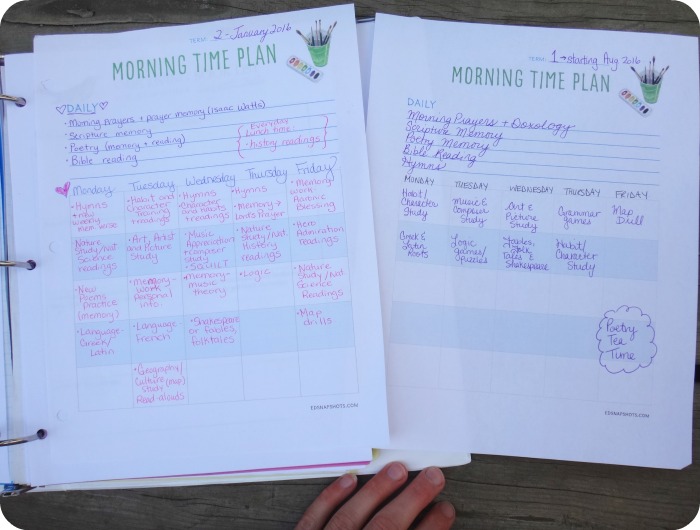 TERM: 2 - January 2016
MORNING TIME PLAN
DAILY
• Morning Prayers + prayer memory (Isaac Watts)
• Scripture memory
• Poetry (memory + reading)
• Bible reading
Everyday
Lunch time
- history readings
Monday
• Hymns
weekly
mem. verse
Nature
Study/Nat.
Science
readings
• New
Poems
Practice
(memory?)
• Language-
Greek/
Latin
Tuesday
• Habit and
Character
Training
readings
• Art, Artist
and Picture
Study
• Memory
work-
personal
info.
• Language
French
• Geography/
Culture (map)
study
Read-alouds
Wednesday
• Hymns
Character
and Habits
readings
• Music
Appreciation
+ composer
study
• Memory-
music
theory
• Shakespeare
or fables,
folktales
Thursday
• Hymns
• Memory→
Lord's Prayer
• Nature
Study/Nat.
History
readings
• Logic
Friday
• Memory
work-
Aaronic
Blessing
• Hero
Admiration
readings
• Nature
Study/Nat.
Science
Readings
• Map
drills
EDSNAPSHOTS.COM
TERM: 1 → starting Aug 2016
MORNING TIME PLAN
DAILY
Morning Prayers + Doxology
Scripture Memory
Poetry Memory
Bible Reading
Hymns
MONDAY
Habit/
Character
Study
Greek &
Latin
Roots
TUESDAY
Music &
Composer
Study
Logic
Games/
Puzzles
WEDNESDAY
Art &
Picture
Study
Fables,
Folk
Tales &
Shakespeare
THURSDAY
Grammar
Games
Habit/
Character
Study
FRIDAY
Map
Drill
Poetry
Tea
Time
EDSNAPSHOTS.COM